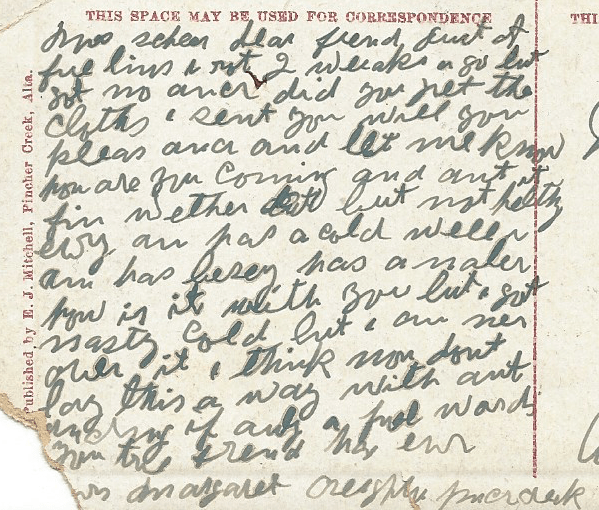 THIS SPACE MAY BE USED FOR CORRESPONDENCE
THI
Published by E. J. Mitchell, Pincher Creek, Alta.
Mrs scheer dear friend Just at
few lins i rot 2 weeaks a go but
got no ancr did you get the
cloths i sent you will you
pleas ancr and let me know
how are you coming and ant it
fin wether but not helthy
evry an has a cold weeer
am has has a
how is it with you but i got
nasty cold but i am ner
over it i think now dont
lay this a way with ant
ancrng if only a few words
you true friend has evr
Margaret